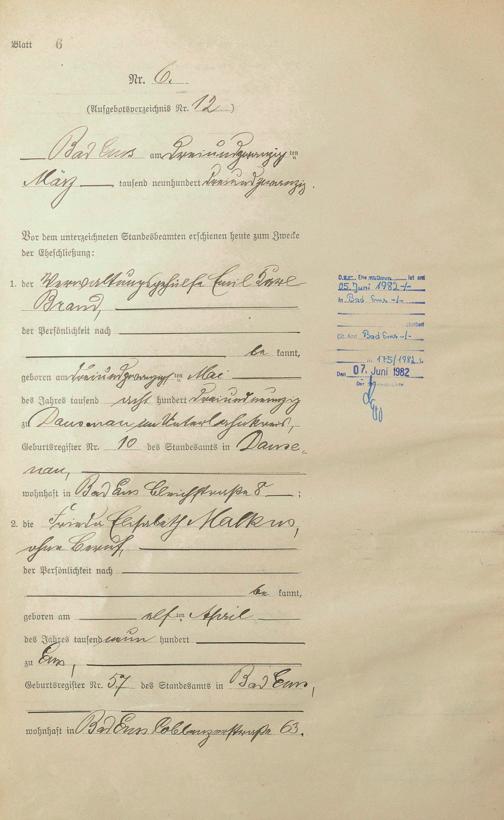 Blatt 6
Nr. 6.
(Aufgebotsverzeichnis Nr. 12)
Bad Ems am dreiundzwanzig ten
März tausend neunhundert dreiundzwanzig.
Vor dem unterzeichneten Standesbeamten erschienen heute zum Zwecke
der Eheschließung:
1. der Verwaltungsgehülfe Emil Karl
Brand,
der Persönlichkeit nach
be kannt,
geboren am dreiundzwanzig ten Mai
des Jahres tausend acht hundert dreiundneunzig
zu Dausenau im Unterlahnkreis,
Geburtsregister Nr. 10 des Standesamts in Dause-
nau,
wohnhaft in Bad Ems Bleichstraße 8 ;
2. die Frieda Elisabeth Malkus,
ohne Beruf,
der Persönlichkeit nach
be kannt,
geboren am elf ten April
des Jahres tausend neun hundert
zu Ems,
Geburtsregister Nr. 57 des Standesamts in Bad Ems,
wohnhaft in Bad Ems Coblenzerstraße 63.
ist am
05. Juni 1982 -/-
in Bad Ems -/-
Bad Ems -/-
175/1982
Den 07. Juni 1982
Der